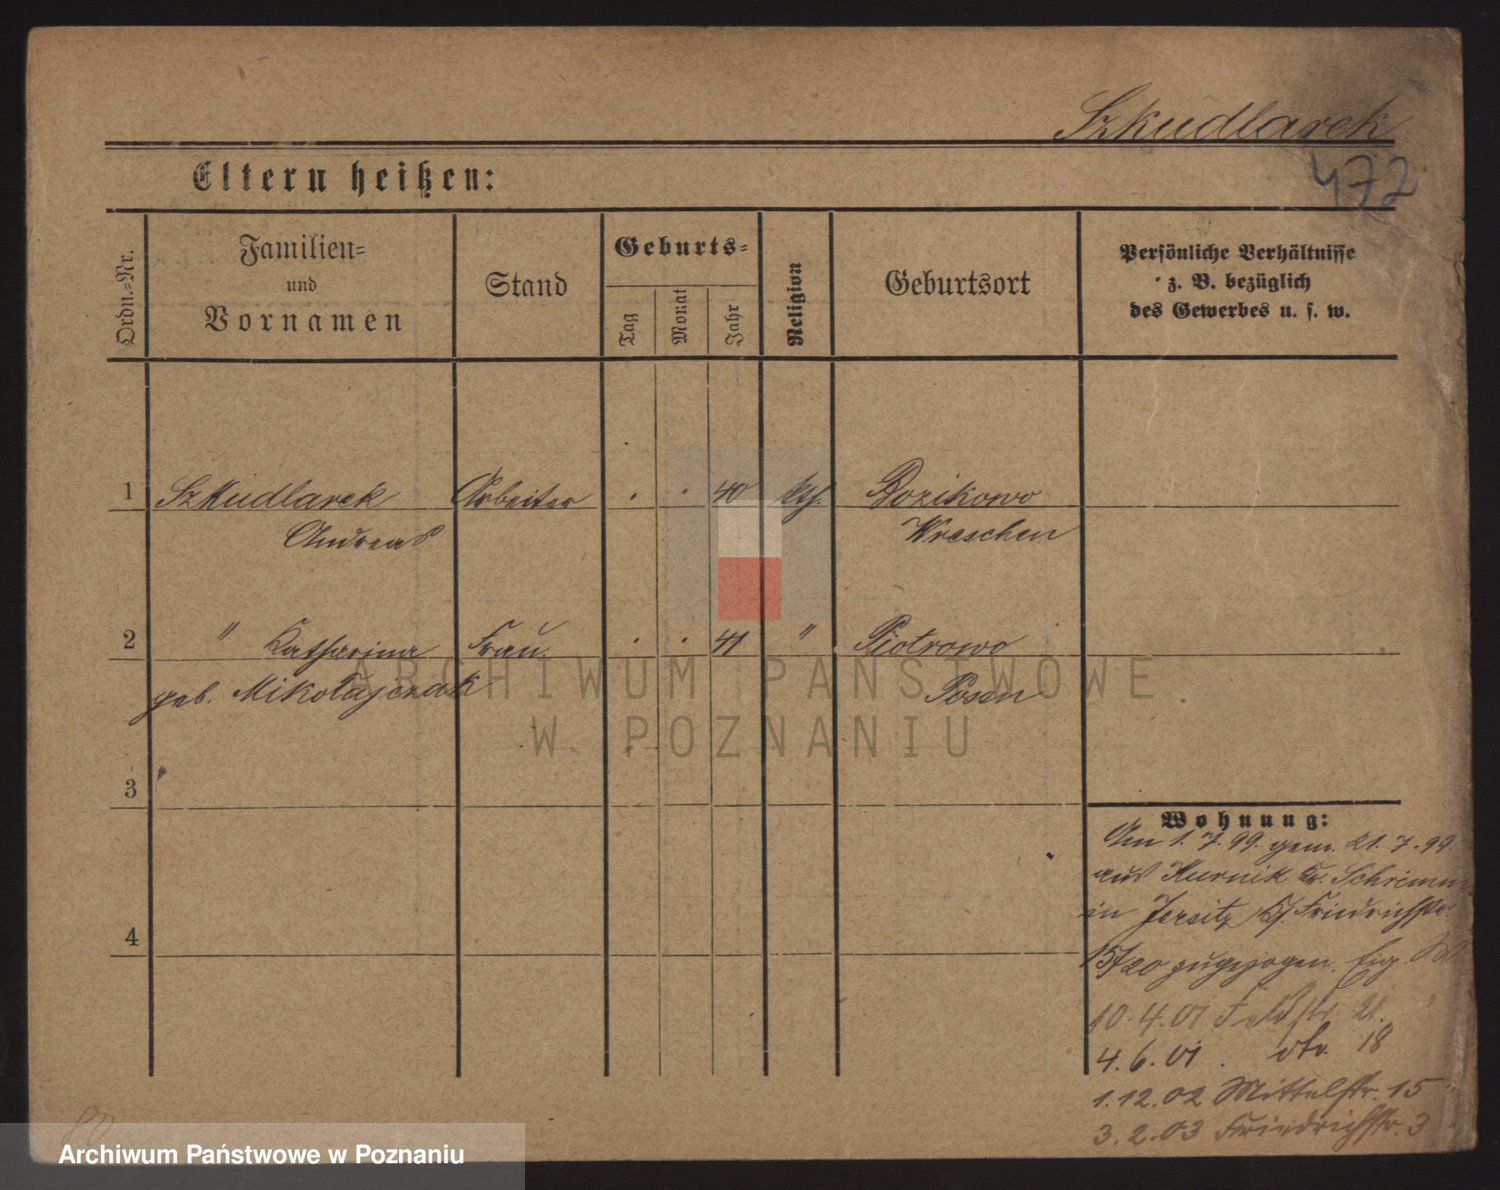 Szkudlarek
472
Eltern heißen:
Ordn.=Nr.
Familien=
und
Vornamen
Stand
Geburts=
Tag
Monat
Jahr
Religion
Geburtsort
Persönliche Verhältnisse
z. B. bezüglich
des Gewerbes u. s. w.
1 Szkudlarek Arbeiter . . 40 kth. Bozikowo
Andreas Wreschen
2 " Katharina Frau . . 41 " Piotrowo
geb. Mikołajczak Posen
3
4
Wohnung:
Am 1.7.99. gem. 21.7.99
aus Kurnik Kr. Schrimm
in Jersitz Friedrichstr.
15/20 zugezogen. Eig.
10.4.01 Feldstr. 21.
4.6.01. dto. 18
1.12.02 Mittelstr. 15
3.2.03 Friedrichstr. 3
80
ARCHIWUM PAŃSTWOWE
W POZNANIU
Archiwum Państwowe w Poznaniu